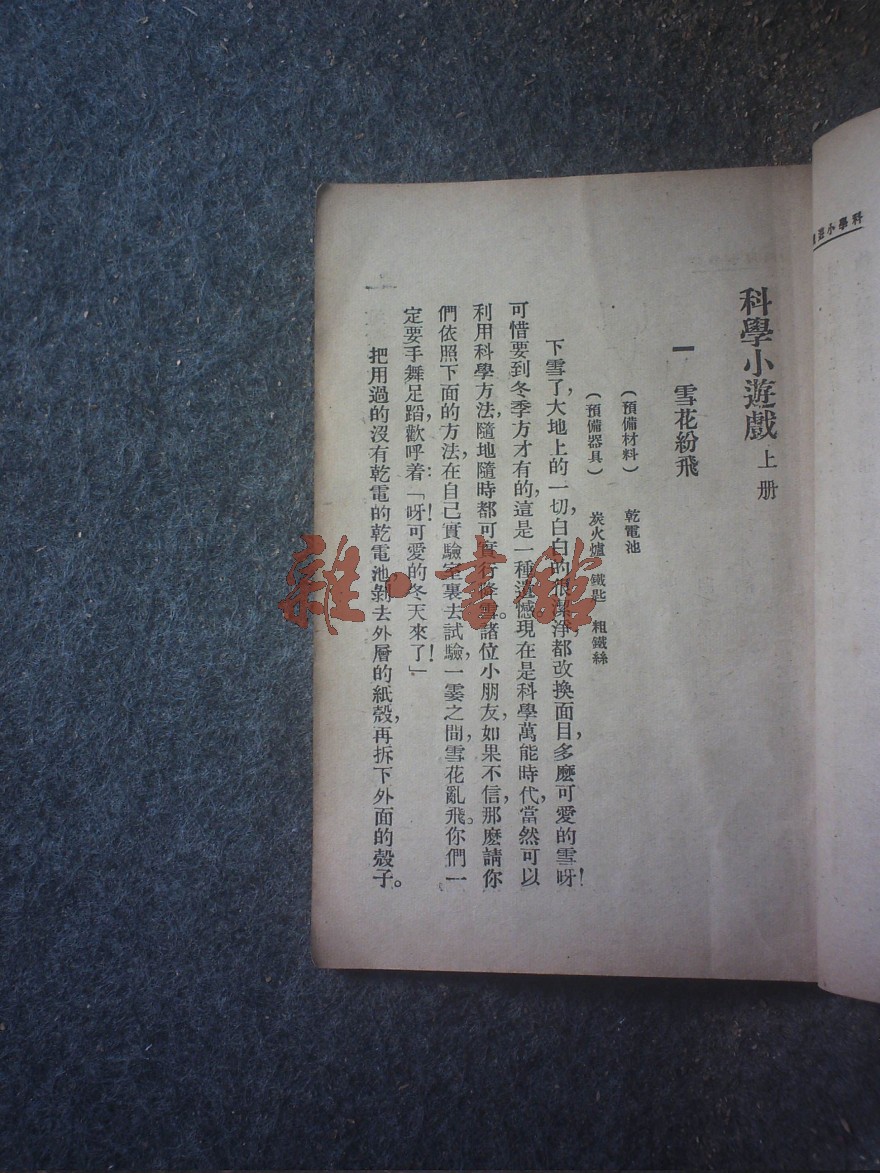 科學小遊
科學小遊戲 上册
一 雪花紛飛
(預備材料) 乾電池
(預備器具) 炭火爐 鐵匙 粗鐵絲
下雪了,大地上的一切,白白的,很潔淨,都改換面目,多麽可愛的雪呀!
可惜要到冬季方才有的,這是一種遺憾。現在是科學萬能時代,當然可以
利用科學方法,隨地隨時都可實行降雪。諸位小朋友,如果不信,那麽請你
們依照下面的方法,在自己實驗室裏去試驗,一霎之間,雪花亂飛。你們一
定要手舞足蹈,歡呼着:「呀!可愛的冬天來了!」
把用過的沒有乾電的乾電池,剝去外層的紙殼,再拆下外面的殼子。
一
雜·書館